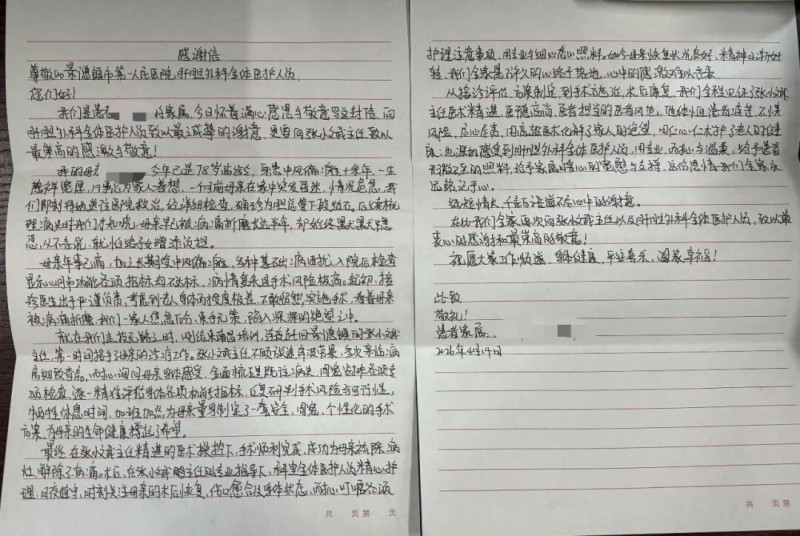 感谢信
尊敬的景德镇市第一人民医院,肝胆外科全体医护人员
您们好!
我们是患者 的家属,今日怀着满心感恩与敬意写封信,向
肝胆外科全体医护人员致以最诚挚的谢意,更要向张小斌主任致以
最崇高的感激与敬意!
我的母 今年已是78岁高龄,身患中风偏瘫十余年,一生
慈祥宽厚,凡事总为家人着想,一个月前母亲在家中突发重疾,情况危急,我
们即刻将她送往医院救治,经详细检查,确诊为胆总管下段结石。后续梳
理病史时我们才知晓,母亲早已被病痛折磨长达半年,却始终默默
忍,从不言说,就怕给子女增添负担。
母亲年事已高,加之长期受中风偏瘫、多种基础病困扰,入院后检查
显示心肺功能各项指标均不达标,病情复杂且手术风险极高。起初,接
诊医生出于严谨负责,考虑到老人身体耐受度极差,不敢贸然实施手术,看着母亲
被病痛折磨,我们一家人焦急万分,束手无策,陷入深深的绝望之中。
就在我们走投无路之时,刚结束南昌培训,连夜赶回景德镇的张小斌
主任,第一时间接手了母亲的诊疗工作。张小斌主任不顾长途奔波劳累,多次亲临病
房细致查房,耐心询问母亲身体感受,全面梳理既往病史,周密安排各项专
项检查,逐一精准评估身体各项功能指标,反复研判手术风险与可行性,
牺牲休息时间,加班加点为母亲量身制定了一套安全、周密、个性化的手术
方案,为母亲的生命健康撑起了希望。
最终,在张小斌主任精湛的医术操控下,手术顺利完成,成功为母亲祛除病
灶,解除了病痛。术后,在张小斌主任的专业指导下,科室全体医护人员精心护
理,日夜值守,时刻关注母亲的术后恢复,伤口愈合及身体状态,耐心叮嘱各项
共 页 第 页
护理注意事项,用专业与细心悉心照料。如今母亲恢复状况良好,精神日渐好
转,我们全家悬浮许久的心终于落地,心中的感激难以言表。
从接诊评估、方案制定到手术施治、术后康复,我们全程见证了张小斌
主任医术精湛,医德高尚,医者担当的医者风范。他体恤患者疾苦,不惧
风险,尽心尽责,用高超医术化解了家人的绝望,用仁心仁术护佑了老人的健
康,也深切感受到肝胆外科全体医护人员,用专业、耐心与温柔,给予患者
无微不至的照料,给予家属暖心的宽慰与支持,这份恩情我们全家永
远铭记于心。
纸短情长,千言万语道不尽心中的谢意。
在此我们全家再次向张小斌主任以及肝胆外科全体医护人员,致以最
衷心的感谢和最崇高的敬意!
祝愿大家工作顺遂、身体健康、平安喜乐、阖家幸福!
此致
敬礼!
患者家属:
2026年4月14日
共 页 第